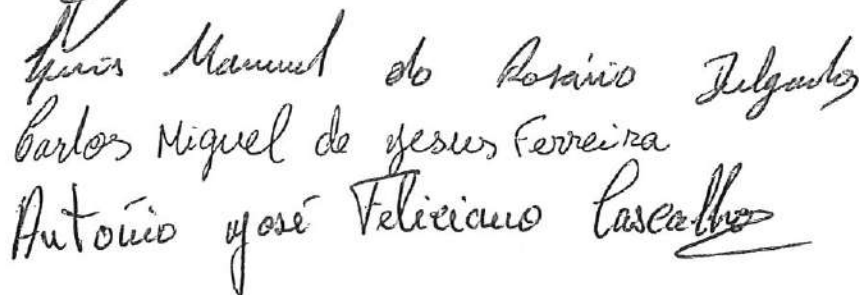 Luís Manuel do Rosário Delgado
Carlos Miguel de Jesus Ferreira
António José Feliciano Cascalho